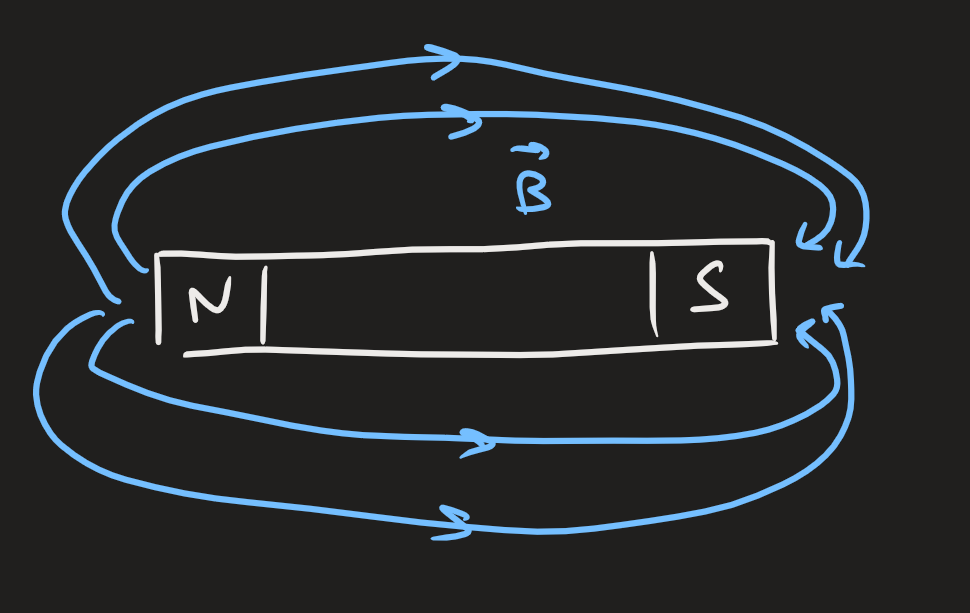 B⃗
N
S